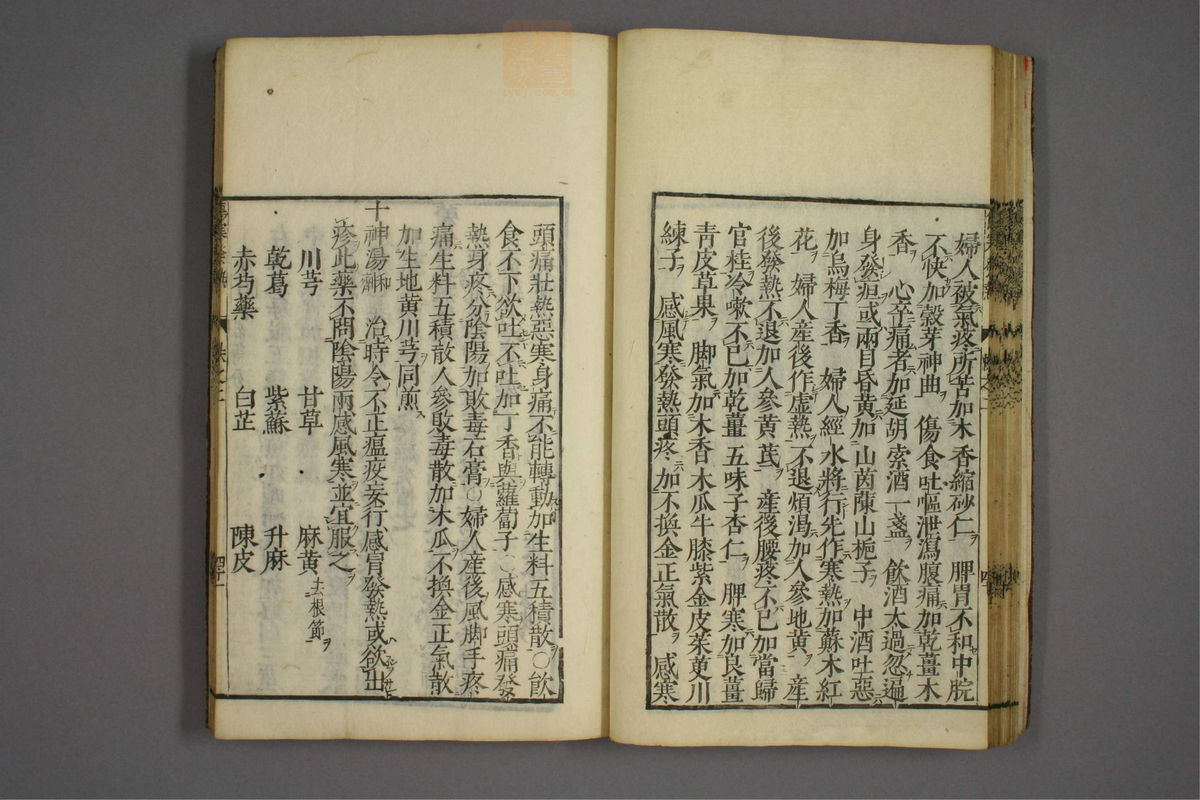 婦人被氣疼所苦加木香縮砂仁 脾胃不和中脘
不快加穀芽神曲 傷食吐嘔泄瀉腹痛加乾薑木
香 心卒痛者加延胡索酒一盞 飲酒太過忽遍
身發疸或兩目昏黃加山茵蔯山梔子 中酒吐惡
加烏梅丁香 婦人經水將行先作寒熱加蘇木紅
花 婦人產後作虛熱不退煩渴加人參地黃 產
後發熱不退加人參黃茋 產後腰疼不已加當歸
官桂冷嗽不已加乾薑五味子杏仁 脾寒加良薑
青皮草果 脚氣加木香木瓜牛膝紫金皮茱萸川
練子 感風寒發熱頭疼加不換金正氣散 感寒
頭痛壯熱惡寒身痛不能轉動加生料五積散○飲
食不下欲吐不吐加丁香與蘿蔔子○感寒頭痛發
熱身疼分陰陽加敗毒石膏○婦人產後風脚手疼
痛生料五積散人參敗毒散加木瓜不換金正氣散
加生地黃川芎同煎
十神湯和劑 治時令不正瘟疫妄行感冒發熱或欲出
疹此藥不問陰陽兩感風寒並宜服之
川芎 甘草 麻黃去根節
乾葛 紫蘇 升麻
赤芍藥 白芷 陳皮